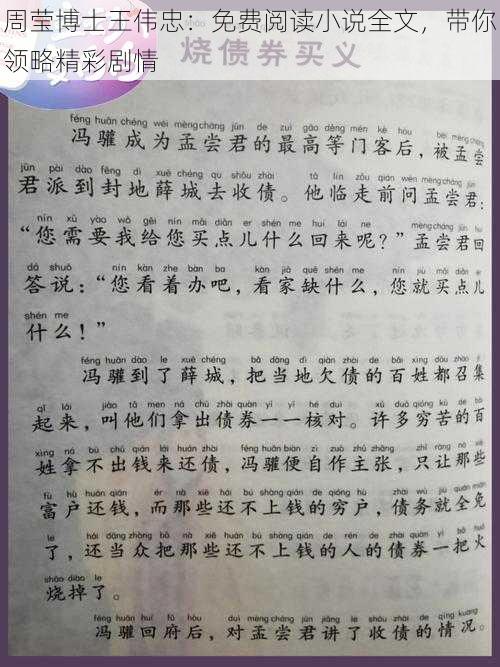 周莹博士王伟忠：免费阅读小说全文，带你
领略精彩剧情
烧债券买义
féng huān chéng wéi mèng cháng jūn de zuì gāo děng mén kè hòu bèi mèng cháng
冯驩成为孟尝君的最高等门客后，被孟尝
jūn pài dào fēng dì xuē chéng qù shōu zhài tā lín zǒu qián wèn mèng cháng jūn
君派到封地薛城去收债。他临走前问孟尝君：
nín xū yào wǒ gěi nín mǎi diǎn er shén me huí lái ne mèng cháng jūn huí
“您需要我给您买点儿什么回来呢？”孟尝君回
dá shuō nín kàn zhe bàn ba kàn jiā quē shén me nín jiù mǎi diǎn er
答说：“您看着办吧，看家缺什么，您就买点儿
shén me
什么！”
féng huān dào le xuē chéng bǎ dāng dì qiàn zhài de bǎi xìng dōu zhào jí
冯驩到了薛城，把当地欠债的百姓都召集
qǐ lái jiào tā men ná chū zhài quàn yī yī hé duì xǔ duō qióng kǔ de bǎi
起来，叫他们拿出债券一一核对。许多穷苦的百
xìng ná bù chū qián lái huán zhài féng huān biàn zì zuò zhǔ zhāng zhǐ ràng nà xiē
姓拿不出钱来还债，冯驩便自作主张，只让那些
fù hù huán qián ér nà xiē hái bú shàng qián de qióng hù zhài wù jiù quán miǎn
富户还钱，而那些还不上钱的穷户，债务就全免
le hái dāng zhòng bǎ nà xiē huán bú shàng qián de rén de zhài quàn yì bǎ huǒ
了，还当众把那些还不上钱的人的债券一把火
shāo diào le
烧掉了。
féng huān huí fǔ hòu duì mèng cháng jūn jiǎng le shōu zhài de qíng kuàng
冯驩回府后，对孟尝君讲了收债的情况。